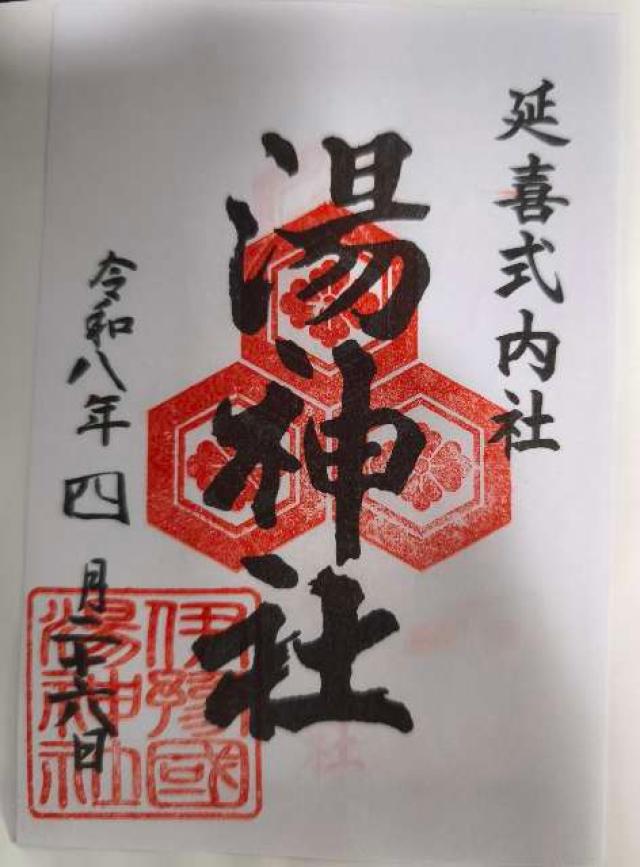 延喜式内社
湯神社
令和八年四月二十六日
伊豫國
湯神社